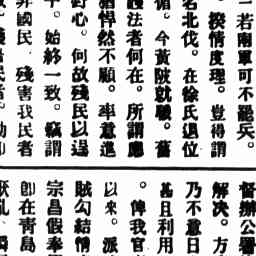 一若南軍可不罷兵。
揆情度理。豈得謂
名北伐。在徐氏退位
循。今黃陂就職。舊
護法者何在。所謂應
猶悍然不顧。率意進
野心。何故殘民以逞
平。始終一致。竊謂
非國民。殘害我民者
督辦公署
解決。方
乃不意日
甚且利用
。俾我官
以來。派
賊勾結情
宗昌假奉
即在青島